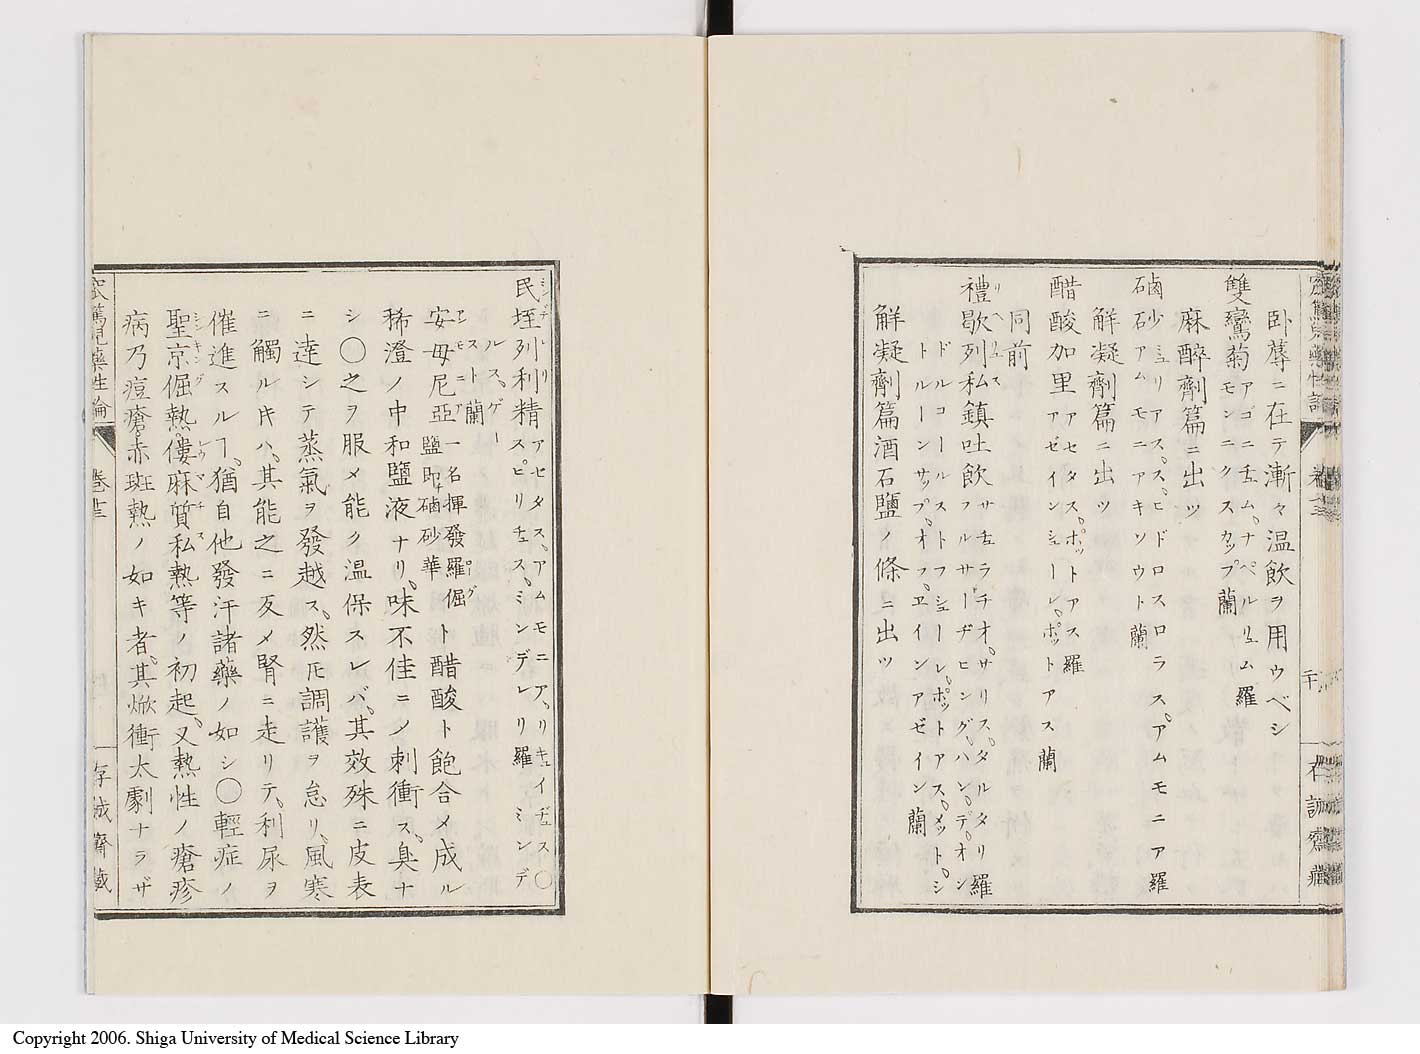 臥蓐ニ在テ漸々温飲ヲ用ウベシ
雙鸞菊アゴニチュム、ナペルリュム羅
モンニクスカップ蘭
麻醉劑篇ニ出ツ
硇砂ミュリアス、ヒドロスロラス、アムモニア羅
硇砂アムモニアキソウト蘭
解凝劑篇ニ出ツ
醋酸加里アセタス、ポットアス羅
アゼインシューレ、ポットアス蘭
同前
禮歇列私鎮吐飲サチュラチオ、サリス、タルタリ羅
フルサーヂヒング、ハン、デ、オン
ドルコールストフシューレ、ポットアス、メット、シ
トルーンサップ、オフ、ヱインアゼイン蘭
解凝劑篇酒石鹽ノ條ニ出ツ
民垤列利精アセタス、アムモニア、リキュイヂュス〇
スピリチュス、ミンデレリ羅ミンデ
ルス、ゲー
スト蘭
安母尼亞一名揮發羅倔
鹽即硇砂華ト醋酸ト飽合メ成ル
稀澄ノ中和鹽液ナリ、味不佳ニノ刺衝ス、臭ナ
シ〇之ヲ服メ能ク温保スレバ、其效殊ニ皮表
ニ達シテ蒸氣ヲ發越ス、然𪜈調護ヲ怠リ、風寒
ニ觸ル片ハ、其能之ニ反メ腎ニ走リテ、利尿ヲ
催進スルヿ、猶自他發汗諸藥ノ如シ〇輕症ノ
聖京倔熱、僂麻質私熱等ノ初起、又熱性ノ瘡疹
病乃痘瘡、赤斑熱ノ如キ者、其焮衝太劇ナラザ
卷十三
存誠齋藏